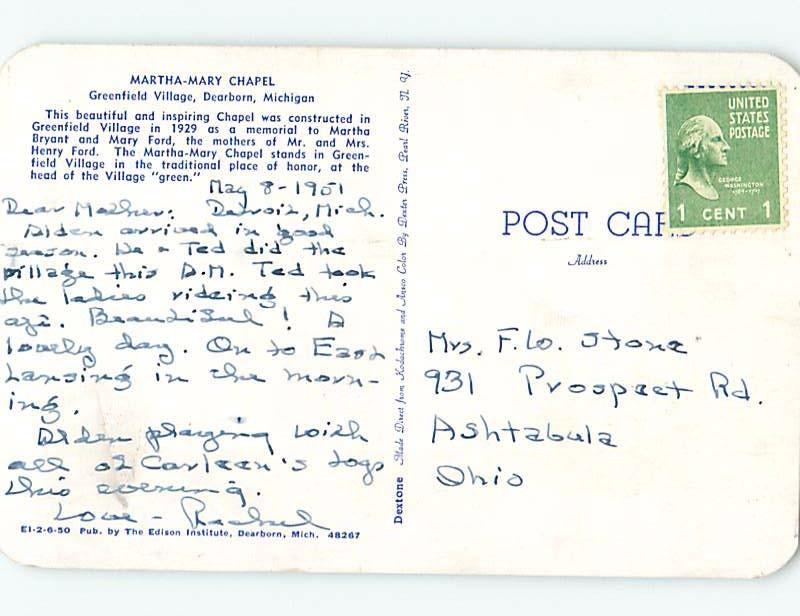 MARTHA-MARY CHAPEL
Greenfield Village, Dearborn, Michigan
This beautiful and inspiring Chapel was constructed in
Greenfield Village in 1929 as a memorial to Martha
Bryant and Mary Ford, the mothers of Mr. and Mrs.
Henry Ford. The Martha-Mary Chapel stands in Green-
field Village in the traditional place of honor, at the
head of the Village "green."
May 8-1951
Dear Mother: Detroit, Mich.
Alden arrived in good
season. He & Ted did the
village this A.M. Ted took
the ladies rideing this
aft. Beautiful! A
lovely day. On to East
Lansing in the morn-
ing.
Alden playing with
all of Carleen's togs
this evening.
Love - Rachel
EI-2-6-50 Pub. by The Edison Institute, Dearborn, Mich. 48267
Dextone Made Direct from Kodachrome and Ansco Color By Dexter Press, Pearl River, N. Y.
UNITED
STATES
POSTAGE
GEORGE
WASHINGTON
1 CENT 1
POST CAR
Address
Mrs. F.W. Stone
931 Prospect Rd.
Ashtabula
Ohio